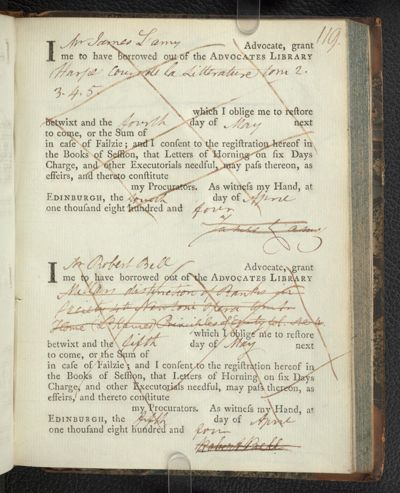 119.
I Mr James L'amy Advocate, grant
me to have borrowed out of the ADVOCATES LIBRARY
Harpe Cours de la Litterature tom 2.
3. 4. 5
which I oblige me to reſtore
betwixt and the fourth day of May next
to come, or the Sum of
in caſe of Failzie; and I conſent to the regiſtration hereof in
the Books of Seſſion, that Letters of Horning on ſix Days
Charge, and other Executorials needful, may paſs thereon, as
effeirs, and thereto conſtitute
my Procurators. As witneſs my Hand, at
EDINBURGH, the fourth day of April
one thouſand eight hundred and four
James L'amy
I Mr Robert Bell Advocate, grant
me to have borrowed out of the ADVOCATES LIBRARY
destruction of Banks
Home Principles of Equity
which I oblige me to reſtore
betwixt and the fifth day of May next
to come, or the Sum of
in caſe of Failzie; and I conſent to the regiſtration hereof in
the Books of Seſſion, that Letters of Horning on ſix Days
Charge, and other Executorials needful, may paſs thereon, as
effeirs, and thereto conſtitute
my Procurators. As witneſs my Hand, at
EDINBURGH, the fifth day of April
one thouſand eight hundred and four
Robert Bell